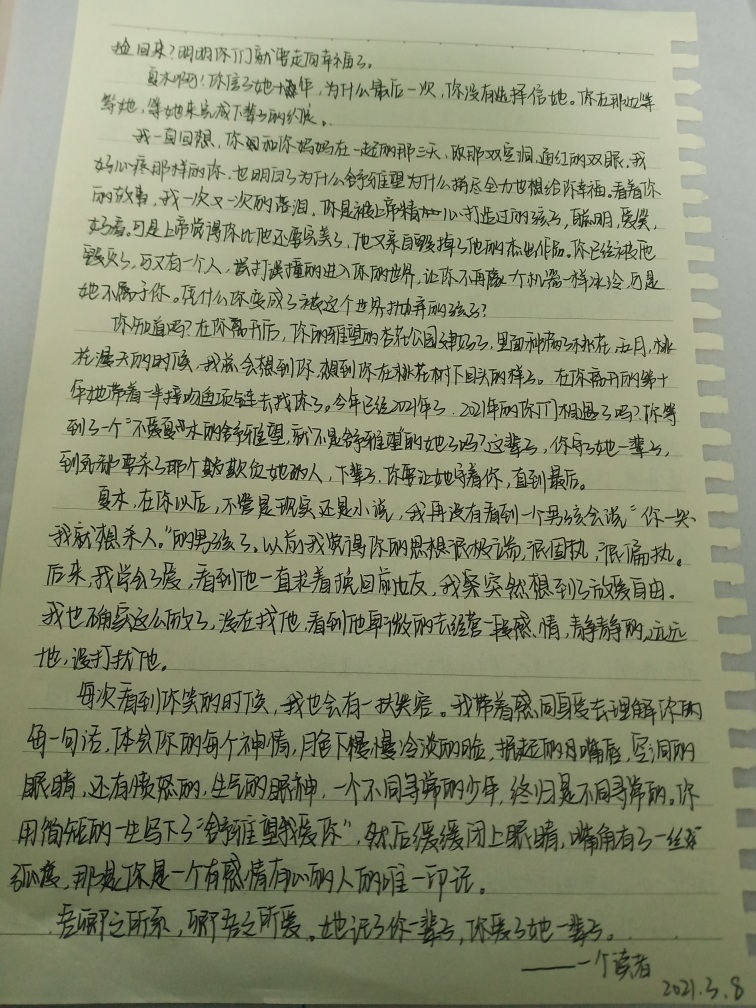 捡回来?明明你们就要走向幸福了。
夏木啊!你信了她十年,为什么最后一次,你没有选择信她。你在那边等
等她,等她来完成下辈子的约限。
我一直回想,你和你妈妈在一起的那三天,以那双空洞,通红的双眼,我
好心疼那样的你,也明白了为什么舒雅望为什么捎尽全力也想给你幸福。看着你
的故事,我一次又一次的落泪,你是被上帝精心打造过的孩子,聪明,爱笑,
好看。可是上帝觉得你比他还要完美了,他又亲自毁掉了他的杰出作品。你已经被他
毁灭了,可又有一个人,误打误撞的进入你的世界,让你不再像一个机器一样冰冷,可是
她不属于你。凭什么你变成了被这个世界抛弃的孩子?
你知道吗?在你离开后,你的雅望的杏花公园建好了,里面种满了桃花,五月,桃
花漫天的时候,我就会想到你,想到你在桃花树下回头的样子。在你离开的第十
年她带着一串接吻鱼项链去找你了。今年已经2021年了,2021年的你们相遇了吗?你等
到了一个“不爱夏木的舒雅望,就不是舒雅望”的她了吗?这辈子,你守了她一辈子,
到死都要杀了那个欺负她的人,下辈子,你要让她守着你,直到最后。
夏木,在你以后,不管是现实还是小说,我再没有看到一个男孩会说“你一哭,
我就想杀人。”的男孩了。以前我觉得你的思想很极端,很固执,很偏执。
后来,我学会了爱,看到他一直求着挽回前女友,我突然想到了放爱自由。
我也确实这么做了,没在找他,看到他卑微的去经营一段感情,静静的,远远
地,没打扰他。
每次看到你笑的时候,我也会有一抹笑容。我带着感同身受去理解你的
每一句话,体会你的每个神情,月色下慢慢冷淡的脸,抿起的嘴唇,空洞的
眼睛,还有愤怒的,生气的眼神,一个不同寻常的少年,终归是不同寻常的。你
用简短的一生写下了“舒雅望我爱你”,然后缓缓闭上眼睛,嘴角有了一丝
弧度,那是你是一个有感情有心的人的唯一印记。
吾卿之所系,卿吾之所爱。她记了你一辈子,你爱了她一辈子。
——一个读者
2021.3.8